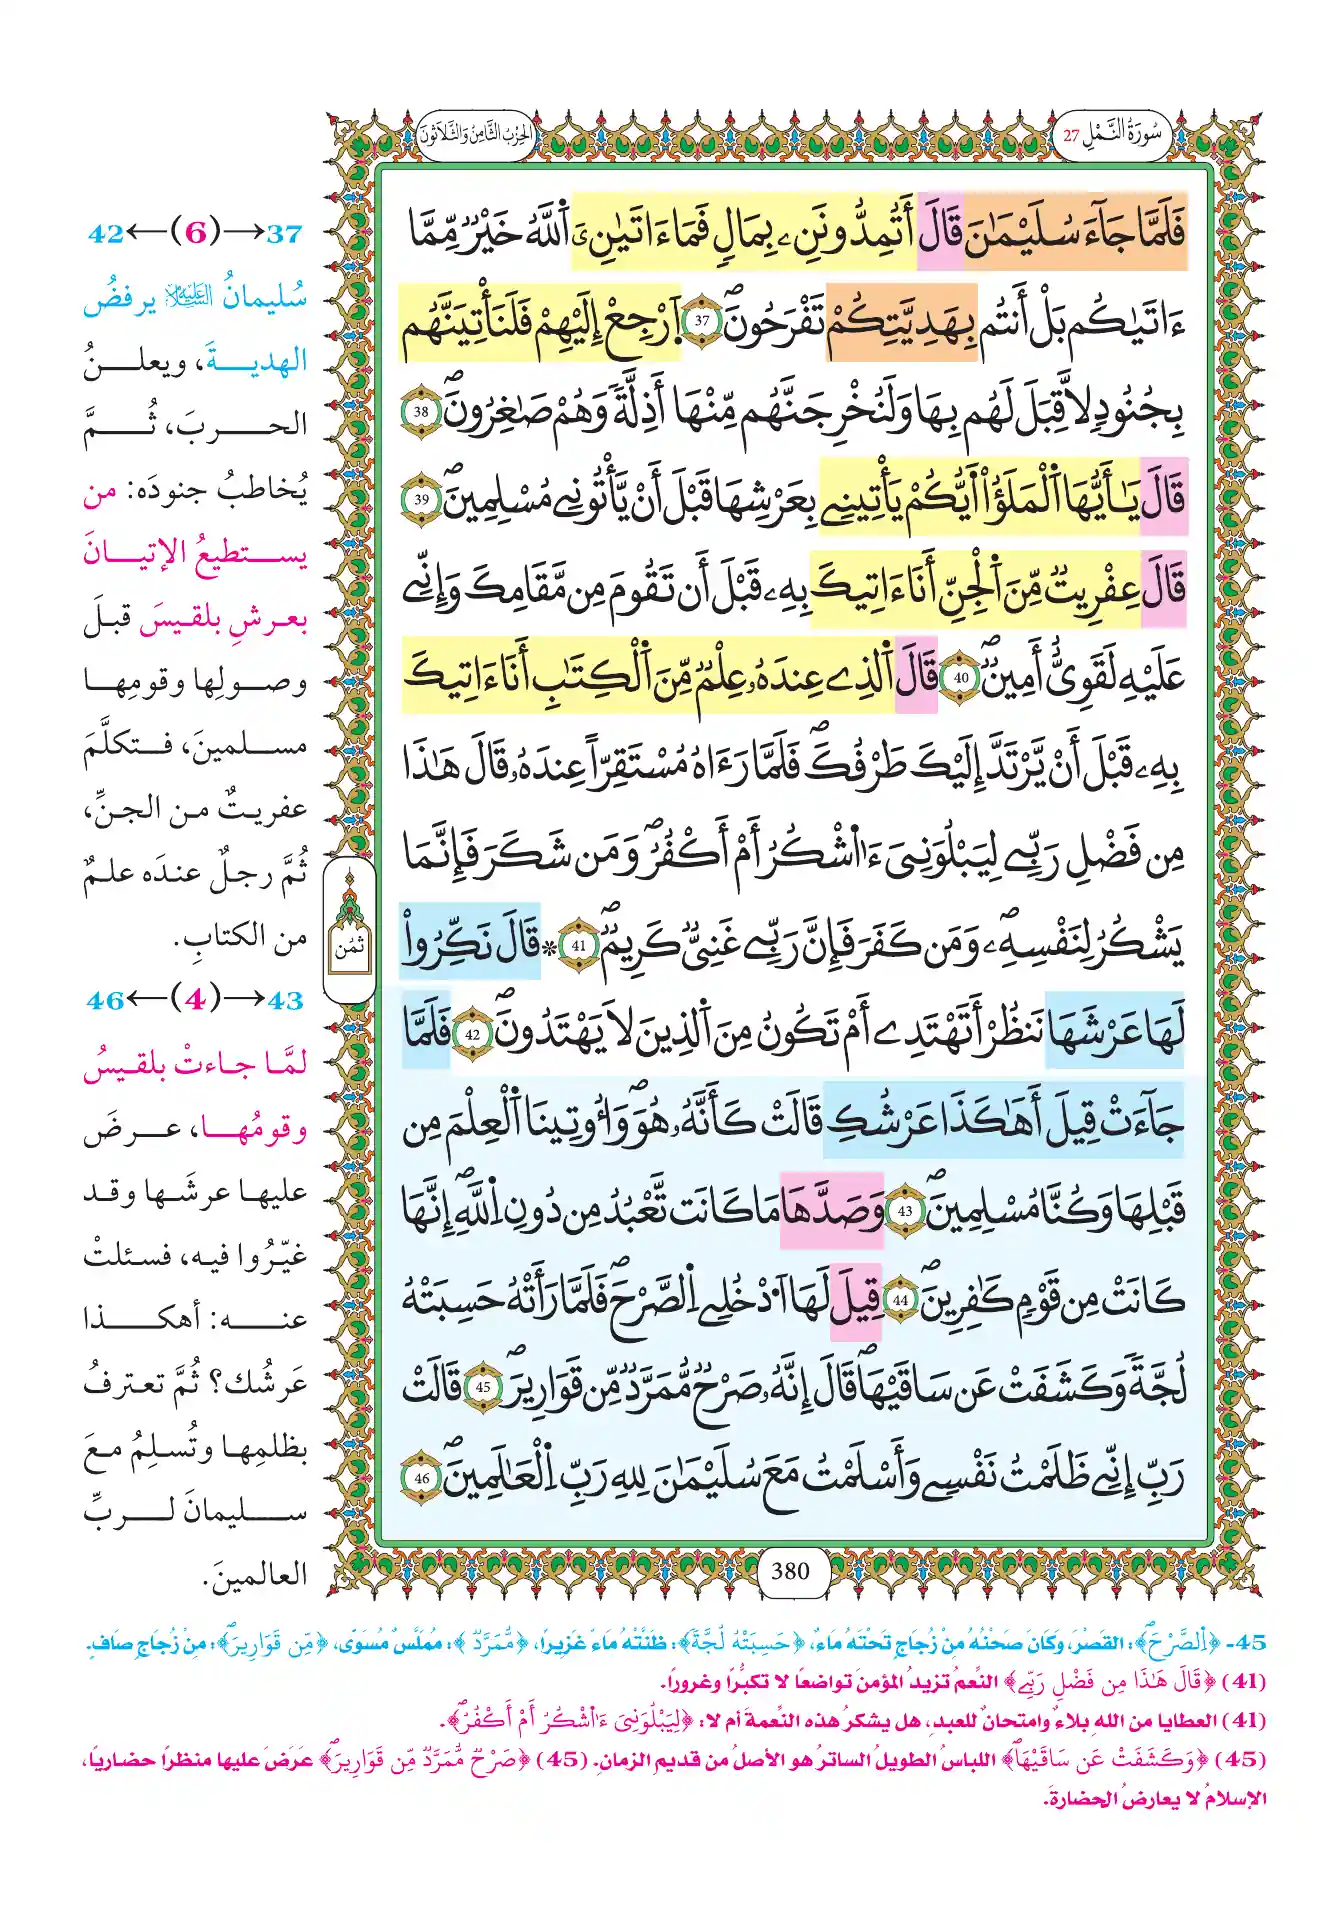 سُورَةُ النَّمْلِ 27
الحِزْبُ الثَّامِنُ وَالثَّلَاثُونَ
فَلَمَّا جَآءَ سُلَيْمَٰنَ قَالَ أَتُمِدُّونَنِۦ بِمَالٖ فَمَآ ءَاتَىٰنِۦَ اَ۬للَّهُ خَيْرٞ مِّمَّآ
ءَاتَىٰكُم بَلْ أَنتُم بِهَدِيَّتِكُمْ تَفْرَحُونَۖ 37 اَ۪رْجِعْ إِلَيْهِمْ فَلَنَأْتِيَنَّهُم
بِجُنُودٖ لَّا قِبَلَ لَهُم بِهَا وَلَنُخْرِجَنَّهُم مِّنْهَآ أَذِلَّةٗ وَهُمْ صَٰغِرُونَۖ 38
قَالَ يَٰٓأَيُّهَا اَ۬لْمَلَؤُاْ اَيُّكُمْ يَأْتِينِے بِعَرْشِهَا قَبْلَ أَنْ يَّأْتُونِے مُسْلِمِينَۖ 39
قَالَ عِفْرِيتٞ مِّنَ اَ۬لْجِنِّ أَنَآ ءَاتِيكَ بِهِۦ قَبْلَ أَن تَقُومَ مِن مَّقَامِكَ وَإِنِّے
عَلَيْهِ لَقَوِيٌّ أَمِينٞۖ 40 قَالَ اَ۬لذِے عِندَهُۥ عِلْمٞ مِّنَ اَ۬لْكِتَٰبِ أَنَآ ءَاتِيكَ
بِهِۦ قَبْلَ أَنْ يَّرْتَدَّ إِلَيْكَ طَرْفُكَۖ فَلَمَّا رَءَاهُ مُسْتَقِرّاً عِندَهُۥ قَالَ هَٰذَا
مِن فَضْلِ رَبِّے لِيَبْلُوَنِيَ ءَا۬شْكُرُ أَمْ أَكْفُرُۖ وَمَن شَكَرَ فَإِنَّمَا
يَشْكُرُ لِنَفْسِهِۦۖ وَمَن كَفَرَ فَإِنَّ رَبِّے غَنِيّٞ كَرِيمٞۖ 41 * قَالَ نَكِّرُواْ
لَهَا عَرْشَهَا نَنظُرْ أَتَهْتَدِےٓ أَمْ تَكُونُ مِنَ اَ۬لذِينَ لَا يَهْتَدُونَۖ 42 فَلَمَّا
جَآءَتْ قِيلَ أَهَٰكَذَا عَرْشُكِ قَالَتْ كَأَنَّهُۥ هُوَۖ وَأُوتِينَا اَ۬لْعِلْمَ مِن
قَبْلِهَا وَكُنَّا مُسْلِمِينَۖ 43 وَصَدَّهَا مَا كَانَت تَّعْبُدُ مِن دُونِ اِ۬للَّهِۖ إِنَّهَا
كَانَتْ مِن قَوْمٖ كَٰفِرِينَۖ 44 قِيلَ لَهَا اَ۟دْخُلِے اِ۬لصَّرْحَۖ فَلَمَّا رَأَتْهُ حَسِبَتْهُ
لُجَّةٗ وَكَشَفَتْ عَن سَاقَيْهَاۖ قَالَ إِنَّهُۥ صَرْحٞ مُّمَرَّدٞ مِّن قَوَارِيرَۖ 45 قَالَتْ
رَبِّ إِنِّے ظَلَمْتُ نَفْسِے وَأَسْلَمْتُ مَعَ سُلَيْمَٰنَ لِلهِ رَبِّ اِ۬لْعَٰلَمِينَۖ 46
ثمُن
380
37→(6)←42
سُليمانُ عليه السلام يرفضُ
الهديةَ، ويعلنُ
الحربَ، ثُمَّ
يُخاطبُ جنودَه: من
يستطيعُ الإتيانَ
بعرشِ بلقيسَ قبلَ
وصولِها وقومِها
مسلمينَ، فتكلَّمَ
عفريتٌ من الجنِّ،
ثُمَّ رجلٌ عندَه علمٌ
من الكتابِ.
43→(4)←46
لمَّا جاءتْ بلقيسُ
وقومُها، عرضَ
عليها عرشَها وقد
غيّرُوا فيه، فسئلتْ
عنه: أهكذا
عَرشُك؟ ثُمَّ تعترفُ
بظلمِها وتُسلِمُ معَ
سليمانَ لربِّ
العالمينَ.
45- ﴿اِ۬لصَّرْحَۖ﴾: القَصْرَ، وكَانَ صَحْنُهُ مِنْ زُجَاجٍ تَحْتَهُ مَاءٌ، ﴿حَسِبَتْهُ لُجَّةٗ﴾: ظَنَّتْهُ مَاءً غَزِيرًا، ﴿مُّمَرَّدٞ﴾: مُمَلَّسٌ مُسَوّى، ﴿مِّن قَوَارِيرَۖ﴾: مِنْ زُجَاجٍ صَافٍ.
(41) ﴿قَالَ هَٰذَا مِن فَضْلِ رَبِّے﴾ النِّعمُ تزيدُ المؤمنَ تواضعًا لا تكبُّرًا وغرورًا.
(41) العطايا من اللهِ بلاءٌ وامتحانٌ للعبدِ، هل يشكرُ هذه النِّعمةَ أم لا: ﴿لِيَبْلُوَنِيَ ءَا۬شْكُرُ أَمْ أَكْفُرُۖ﴾.
(45) ﴿وَكَشَفَتْ عَن سَاقَيْهَاۖ﴾ اللباسُ الطويلُ الساترُ هو الأصلُ من قديمِ الزمانِ. (45) ﴿صَرْحٞ مُّمَرَّدٞ مِّن قَوَارِيرَۖ﴾ عَرَضَ عليها منظرًا حضاريًا،
الإسلامُ لا يعارضُ الحضارةَ.